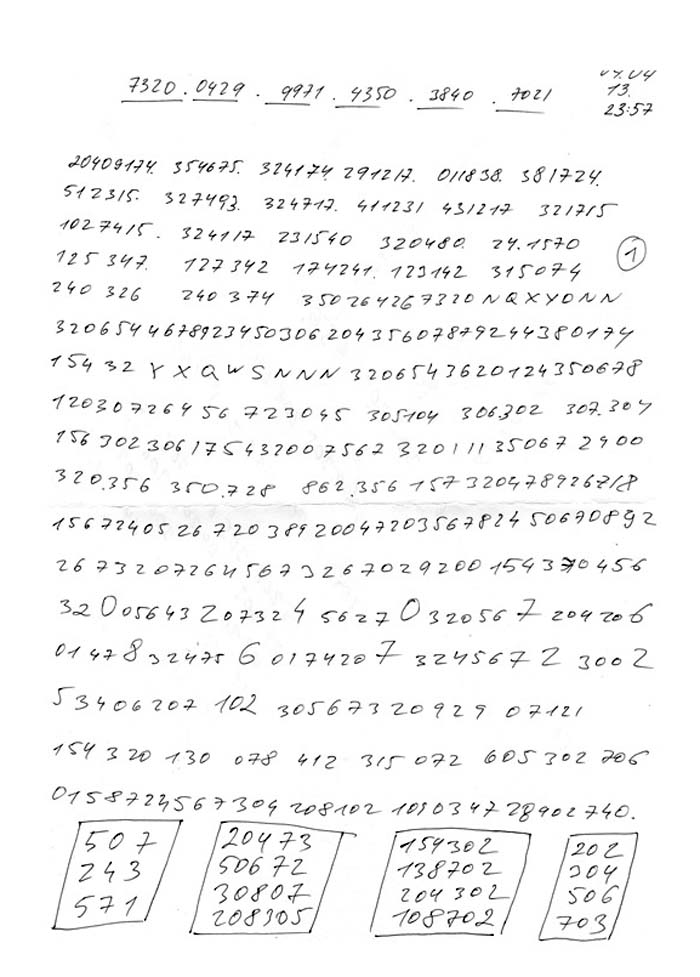 7320 . 0429 . 9971 . 4350 . 3840 . 7021
13.
23:57
20409174. 354675. 324174. 291217. 011838. 381724.
512315. 327493. 324717. 411231 431217 321715
1027415. 324117 231540 320480. 24.1570
125 347. 127342 174241. 123142 315074
①
240 326 240 374 350264267320NQXYONN
320654467892345030620435607879244380174
154 32 YXQWSNNN 3206543620124350678
120307264 56 723045 305104 306.302 307.304
156 302306175432007567 320111350672900
320.356 350.728 862.356 157 320478926718
156724052672038920047203567824 50670892
26732072645673267029200154370456
320056432073245627 0320567 204206
0147832475 6 0174207 3245672 3002
53406207 102 30567320929 07121
154 320 130 078 412 315 072 605 302 706
0158724567304 208102 1090347 28902740.
507
243
571
20473
50672
30807
208305
154302
138702
204302
108702
202
304
506
703